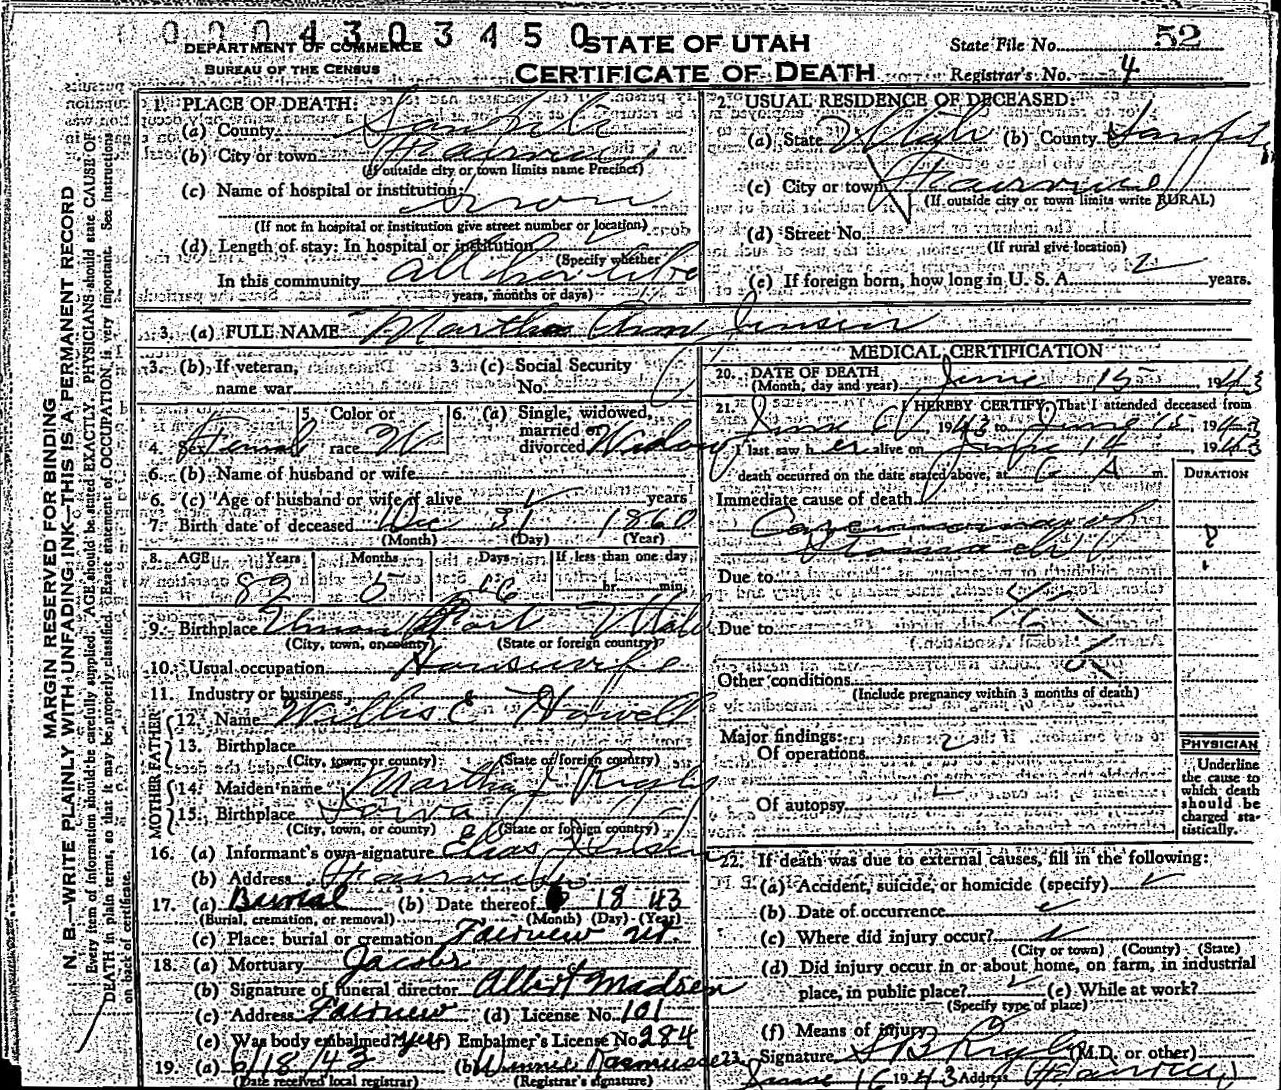 0004303450
DEPARTMENT OF COMMERCE
BUREAU OF THE CENSUS
STATE OF UTAH
CERTIFICATE OF DEATH
State File No. 52
Registrar's No. 4
MARGIN RESERVED FOR BINDING
N. B.—WRITE PLAINLY WITH UNFADING INK—THIS IS A PERMANENT RECORD
Every item of information should be carefully supplied. AGE should be stated EXACTLY. PHYSICIANS should state CAUSE OF
DEATH in plain terms, so that it may be properly classified. Exact statement of OCCUPATION is very important. See instructions
on back of certificate.
1. PLACE OF DEATH:
(a) County Sanpete
(b) City or town Fairview
(If outside city or town limits name Precinct)
(c) Name of hospital or institution:
(If not in hospital or institution give street number or location)
(d) Length of stay: In hospital or institution
(Specify whether
In this community all her life
years, months or days)
2. USUAL RESIDENCE OF DECEASED:
(a) State Utah (b) County Sanpete
(c) City or town Fairview
(If outside city or town limits write RURAL)
(d) Street No.
(If rural give location)
(e) If foreign born, how long in U. S. A. years.
3. (a) FULL NAME Martha Ann Jensen
3. (b) If veteran,
name war
3. (c) Social Security
No.
4. Sex Female
5. Color or
race W
6. (a) Single, widowed,
married or
divorced Widow
6. (b) Name of husband or wife
6. (c) Age of husband or wife if alive years
7. Birth date of deceased Dec 31 1860
(Month) (Day) (Year)
8. AGE Years Months Days If less than one day
82 5 hr. min.
9. Birthplace Union Fort Utah
(City, town, or county) (State or foreign country)
10. Usual occupation Housewife
11. Industry or business
FATHER
12. Name Willis E Howell
13. Birthplace
(City, town, or county) (State or foreign country)
MOTHER
14. Maiden name Martha J Rigby
15. Birthplace Iowa
(City, town, or county) (State or foreign country)
16. (a) Informant's own signature Elias
(b) Address Fairview
17. (a) Burial (b) Date thereof 18 43
(Burial, cremation, or removal) (Month) (Day) (Year)
(c) Place: burial or cremation Fairview Ut.
18. (a) Mortuary Jacobs
(b) Signature of funeral director Albert Madsen
(c) Address Fairview (d) License No. 101
(e) Was body embalmed? yes Embalmer's License No. 284
19. (a) 6/18/43 (b) Winnie Rasmussen
(Date received local registrar) (Registrar's signature)
MEDICAL CERTIFICATION
20. DATE OF DEATH
(Month, day and year) June 15, 1943
21. I HEREBY CERTIFY, That I attended deceased from
June 1943 to June 15, 1943
I last saw her alive on June 14, 1943
death occurred on the date stated above, at 6 A m.
DURATION
Immediate cause of death
Carcinoma of
Stomach
?
Due to
Due to
Other conditions
(Include pregnancy within 3 months of death)
Major findings:
Of operations
Of autopsy
PHYSICIAN
Underline
the cause to
which death
should be
charged sta-
tistically.
22. If death was due to external causes, fill in the following:
(a) Accident, suicide, or homicide (specify)
(b) Date of occurrence
(c) Where did injury occur?
(City or town) (County) (State)
(d) Did injury occur in or about home, on farm, in industrial
place, in public place? (e) While at work?
(Specify type of place)
(f) Means of injury
23. Signature S B Rigby (M.D. or other)
June 16 1943 Address Fairview